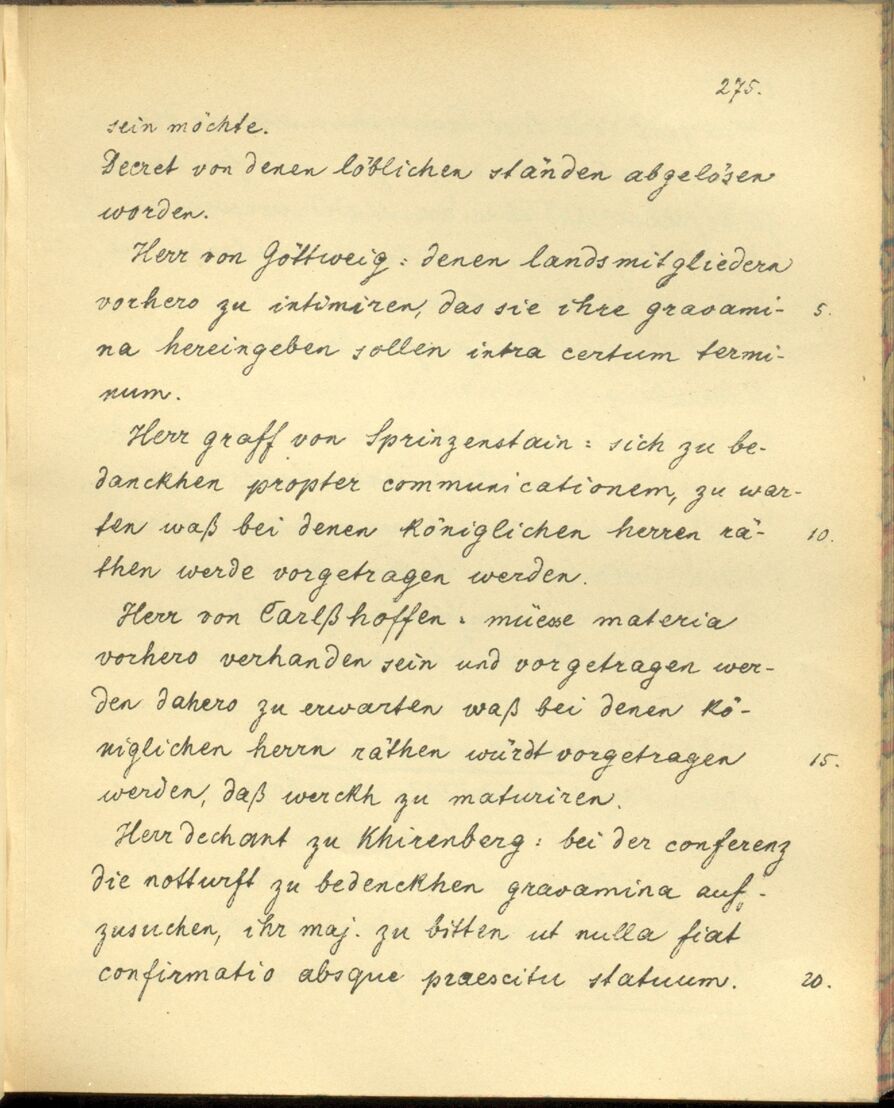 275.
sein möchte.
Decret von denen löblichen ständen abgelösen
worden.
Herr von Göttweig : denen landsmitgliedern
vorhero zu intimiren, das sie ihre gravami- 5.
na hereingeben sollen intra certum termi-
num.
Herr graff von Sprinzenstain : sich zu be-
danckhen propter communicationem, zu war-
ten waß bei denen königlichen herren rä- 10.
then werde vorgetragen werden.
Herr von Carlßhoffen : müesse materia
vorhero verhanden sein und vorgetragen wer-
den dahero zu erwarten waß bei denen kö-
niglichen herrn räthen würdt vorgetragen 15.
werden, daß werckh zu maturiren.
Herr dechant zu Khirenberg : bei der conferenz
die notturft zu bedenckhen gravamina auf-
zusuchen, ihr maj. zu bitten ut nulla fiat
confirmatio absque praescitu statuum. 20.